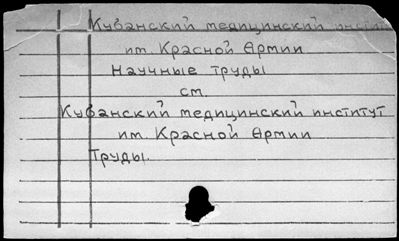 Кубанский медицинский институ
им. Красной Армии
Научные труды
см.
Кубанский медицинский институт
им. Красной Армии
Труды.